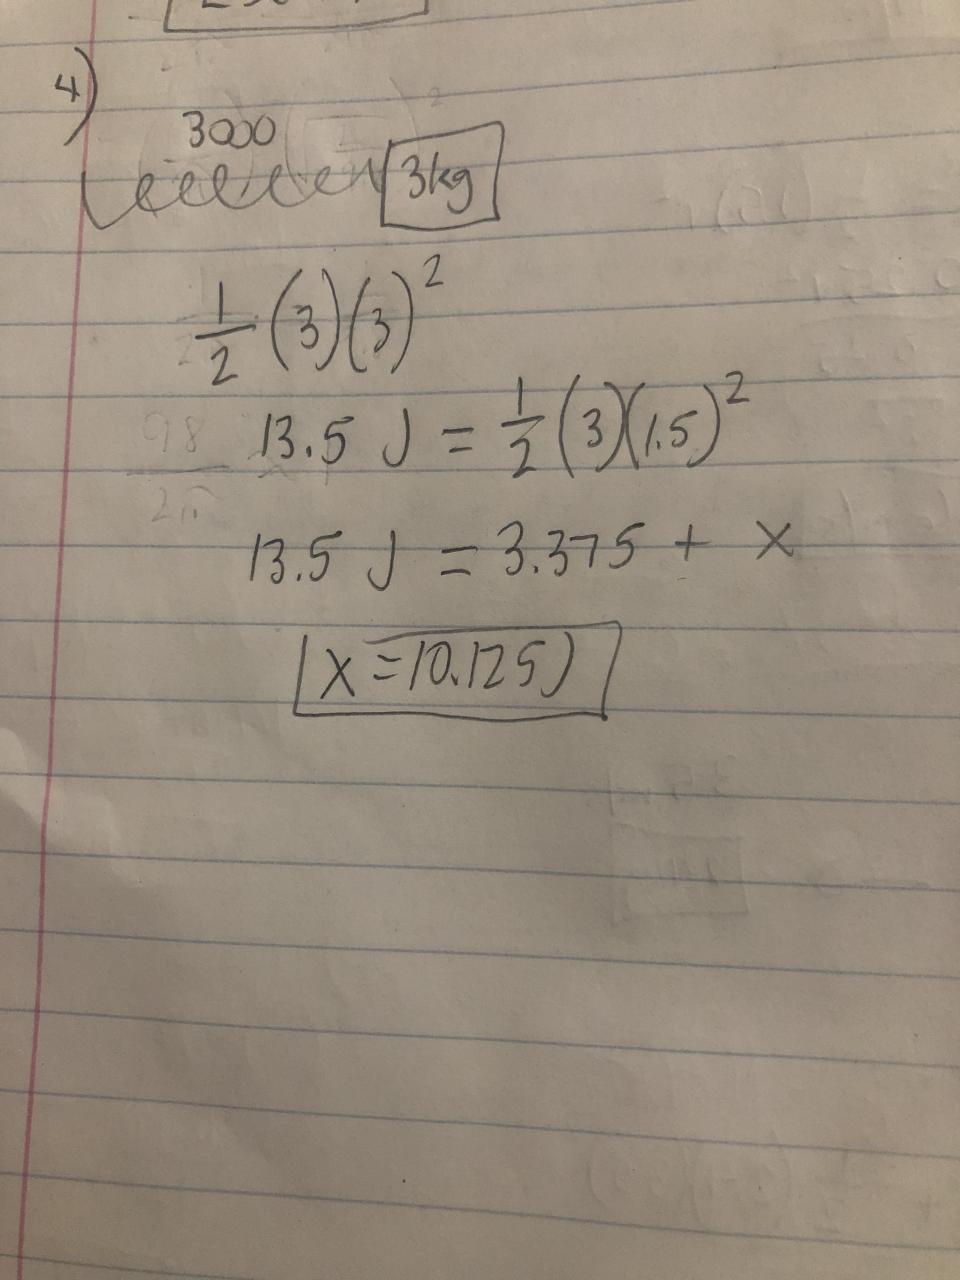 4)
3000
3kg
1/2 (3)(3)²
13.5 J = 1/2 (3)(1.5)²
13.5 J = 3.375 + x
x = 10.125J